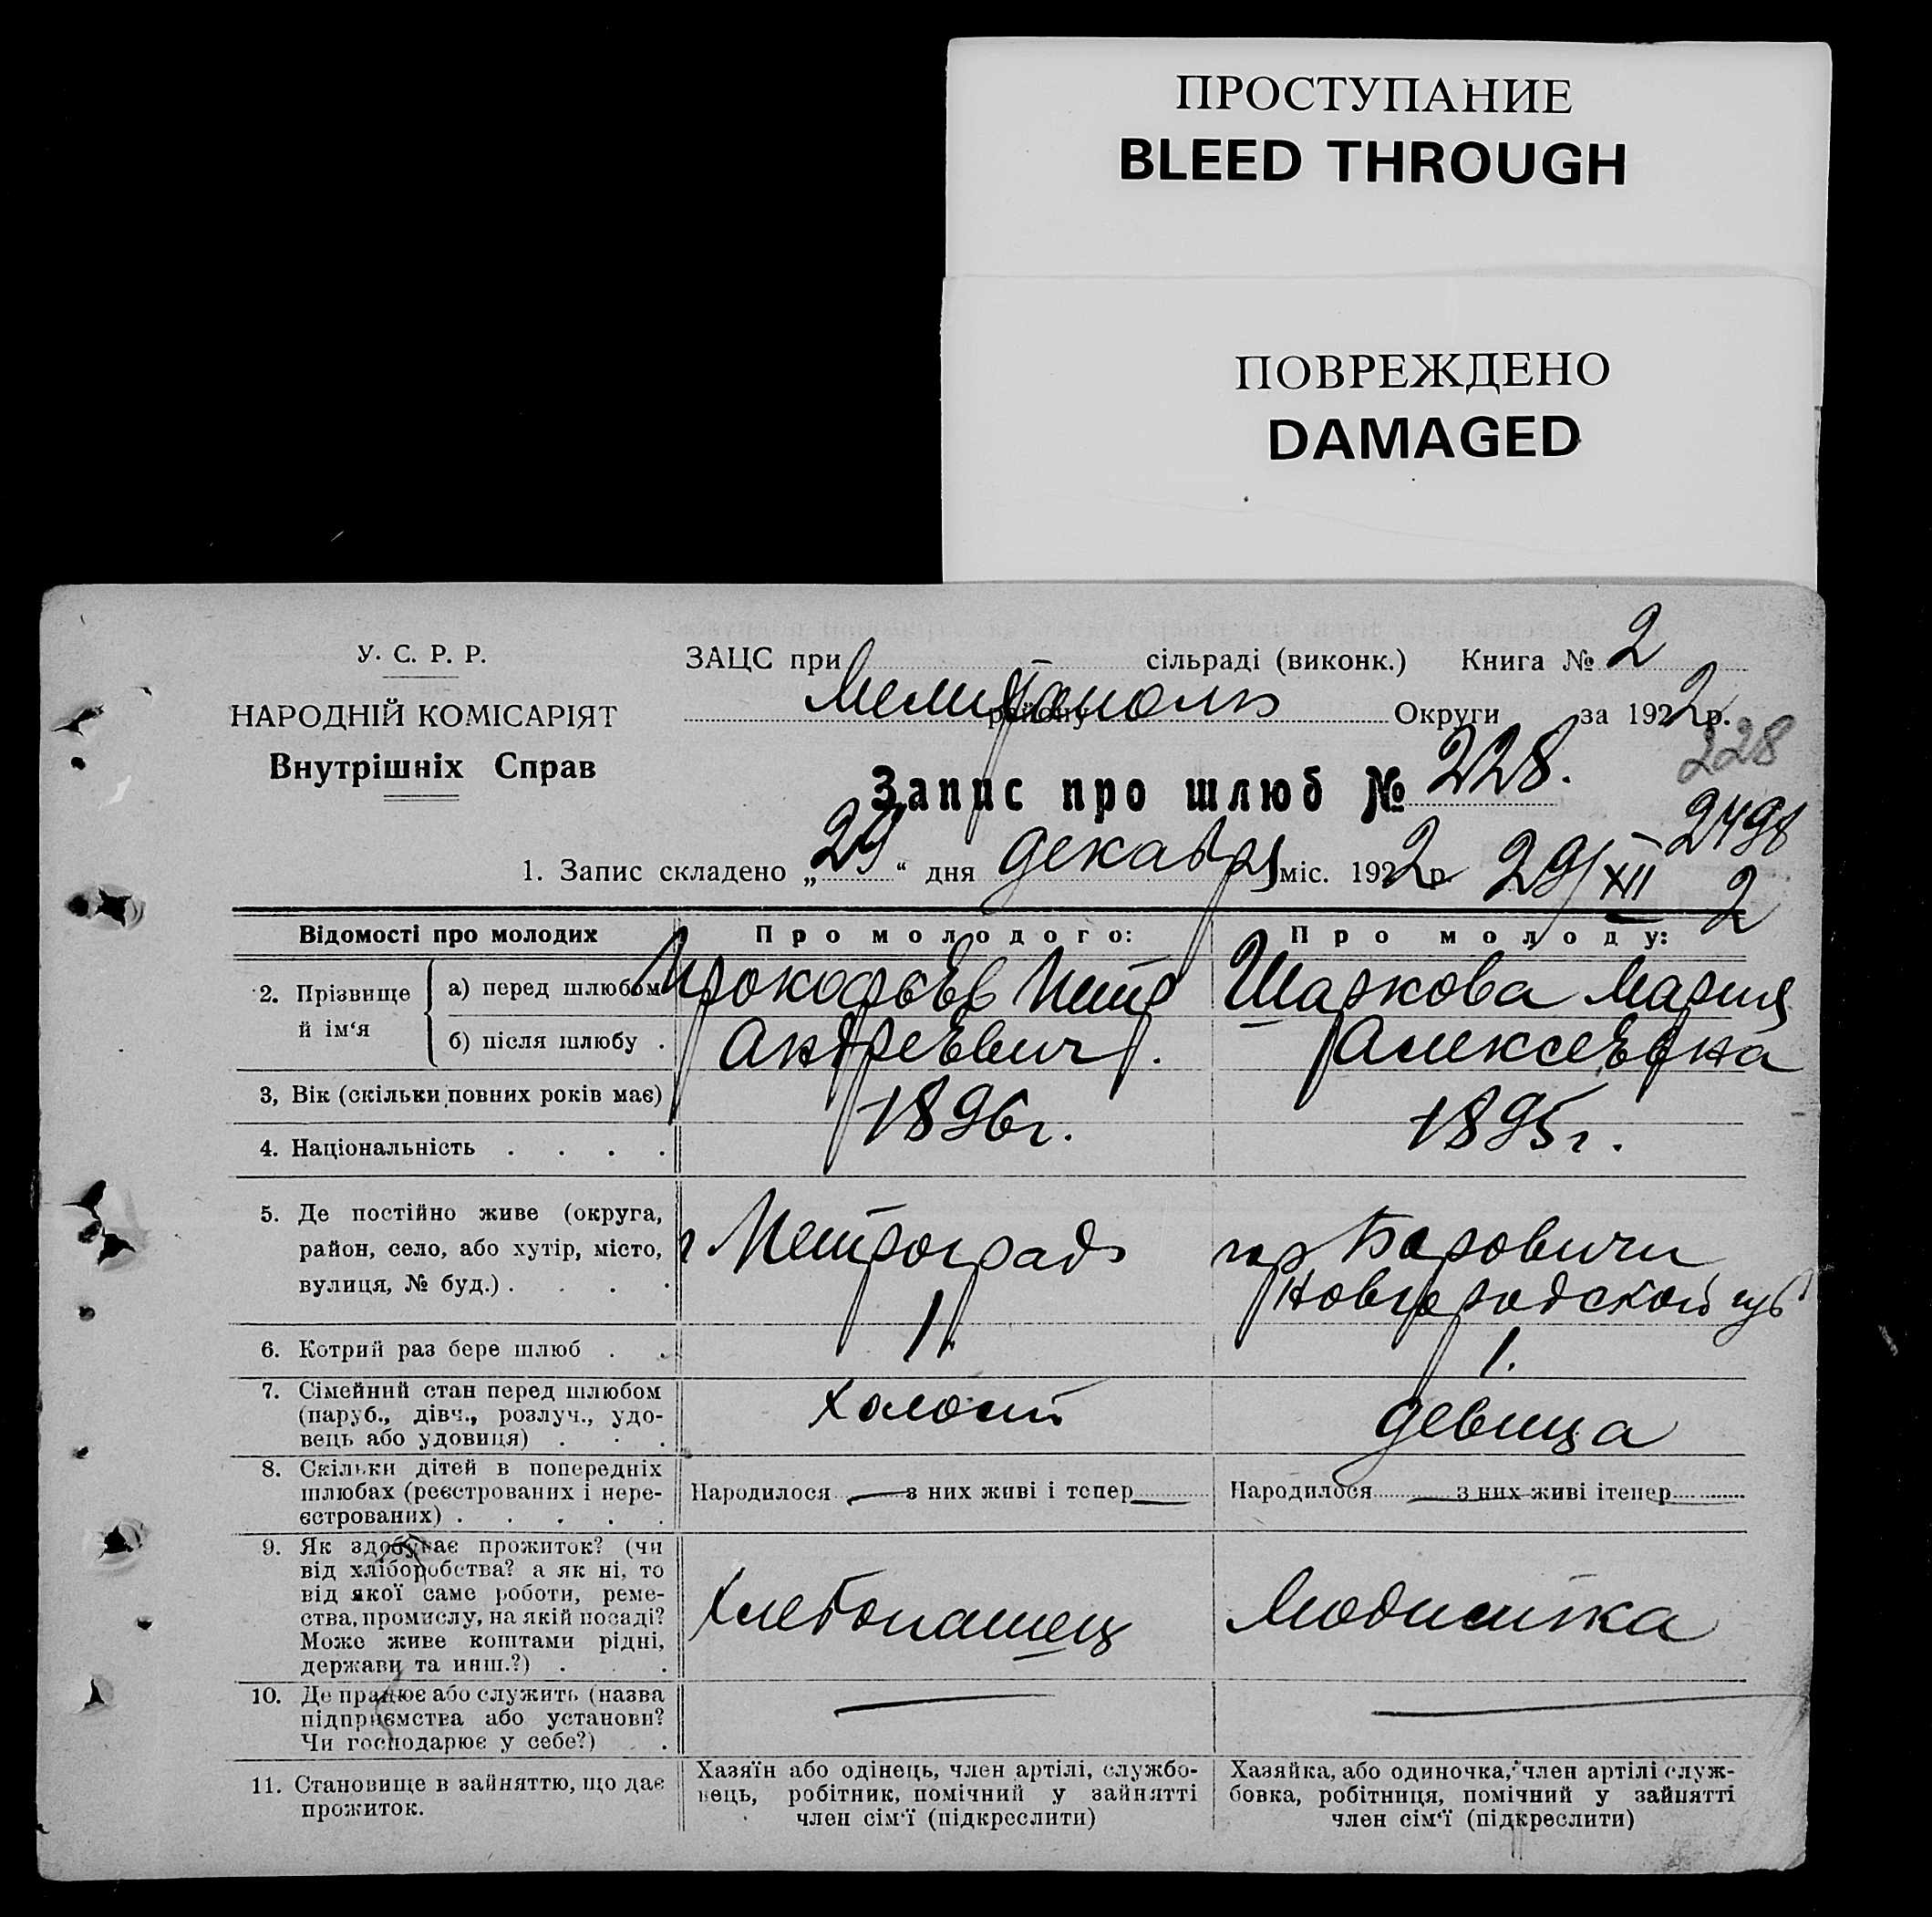 ПРОСТУПАНИЕ
BLEED THROUGH
ПОВРЕЖДЕНО
DAMAGED
У. С. Р. Р.
НАРОДНІЙ КОМІСАРІЯТ
Внутрішніх Справ
ЗАЦС при сільраді (виконк.) Книга № 2
Мелитополь району Округи за 1922 р.
228
Запис про шлюб № 228.
2498
1. Запис складено „29“ дня декабря міс. 1922 р. 29/XII 2
Відомості про молодих
Про молодого:
Про молоду:
2. Прізвище й ім‘я
а) перед шлюбом
Прокофьев Петр
Шаркова Мария
б) після шлюбу .
Андреевич.
Алексеевна
3, Вік (скільки повних років має)
1896 г.
1895 г.
4. Національність . . . .
5. Де постійно живе (округа,
район, село, або хутір, місто,
вулиця, № буд.) . . . .
г Петроград
гор Боровичи
Новгородской губ
6. Котрий раз бере шлюб . .
1.
1.
7. Сімейний стан перед шлюбом
(паруб., дівч., розлуч., удо-
вець або удовиця) . . .
холост
девица
8. Скільки дітей в попередніх
шлюбах (реєстрованих і нере-
єстрованих) . . . . .
Народилося — з них живі і тепер —
Народилося — з них живі ітепер —
9. Як здобуває прожиток? (чи
від хліборобства? а як ні, то
від якої саме роботи, реме-
ства, промислу, на якій посаді?
Може живе коштами рідні,
держави та инш.?) . . .
Хлебопашец
Модистка
10. Де працює або служить (назва
підприємства або установи?
Чи господарює у себе?) . .
—
—
11. Становище в зайняттю, що дає
прожиток.
Хазяїн або одінець, член артілі, службо-
вець, робітник, помічний у зайнятті
член сім‘ї (підкреслити)
Хазяйка, або одиночка, член артілі служ-
бовка, робітниця, помічний у зайнятті
член сім‘ї (підкреслити)